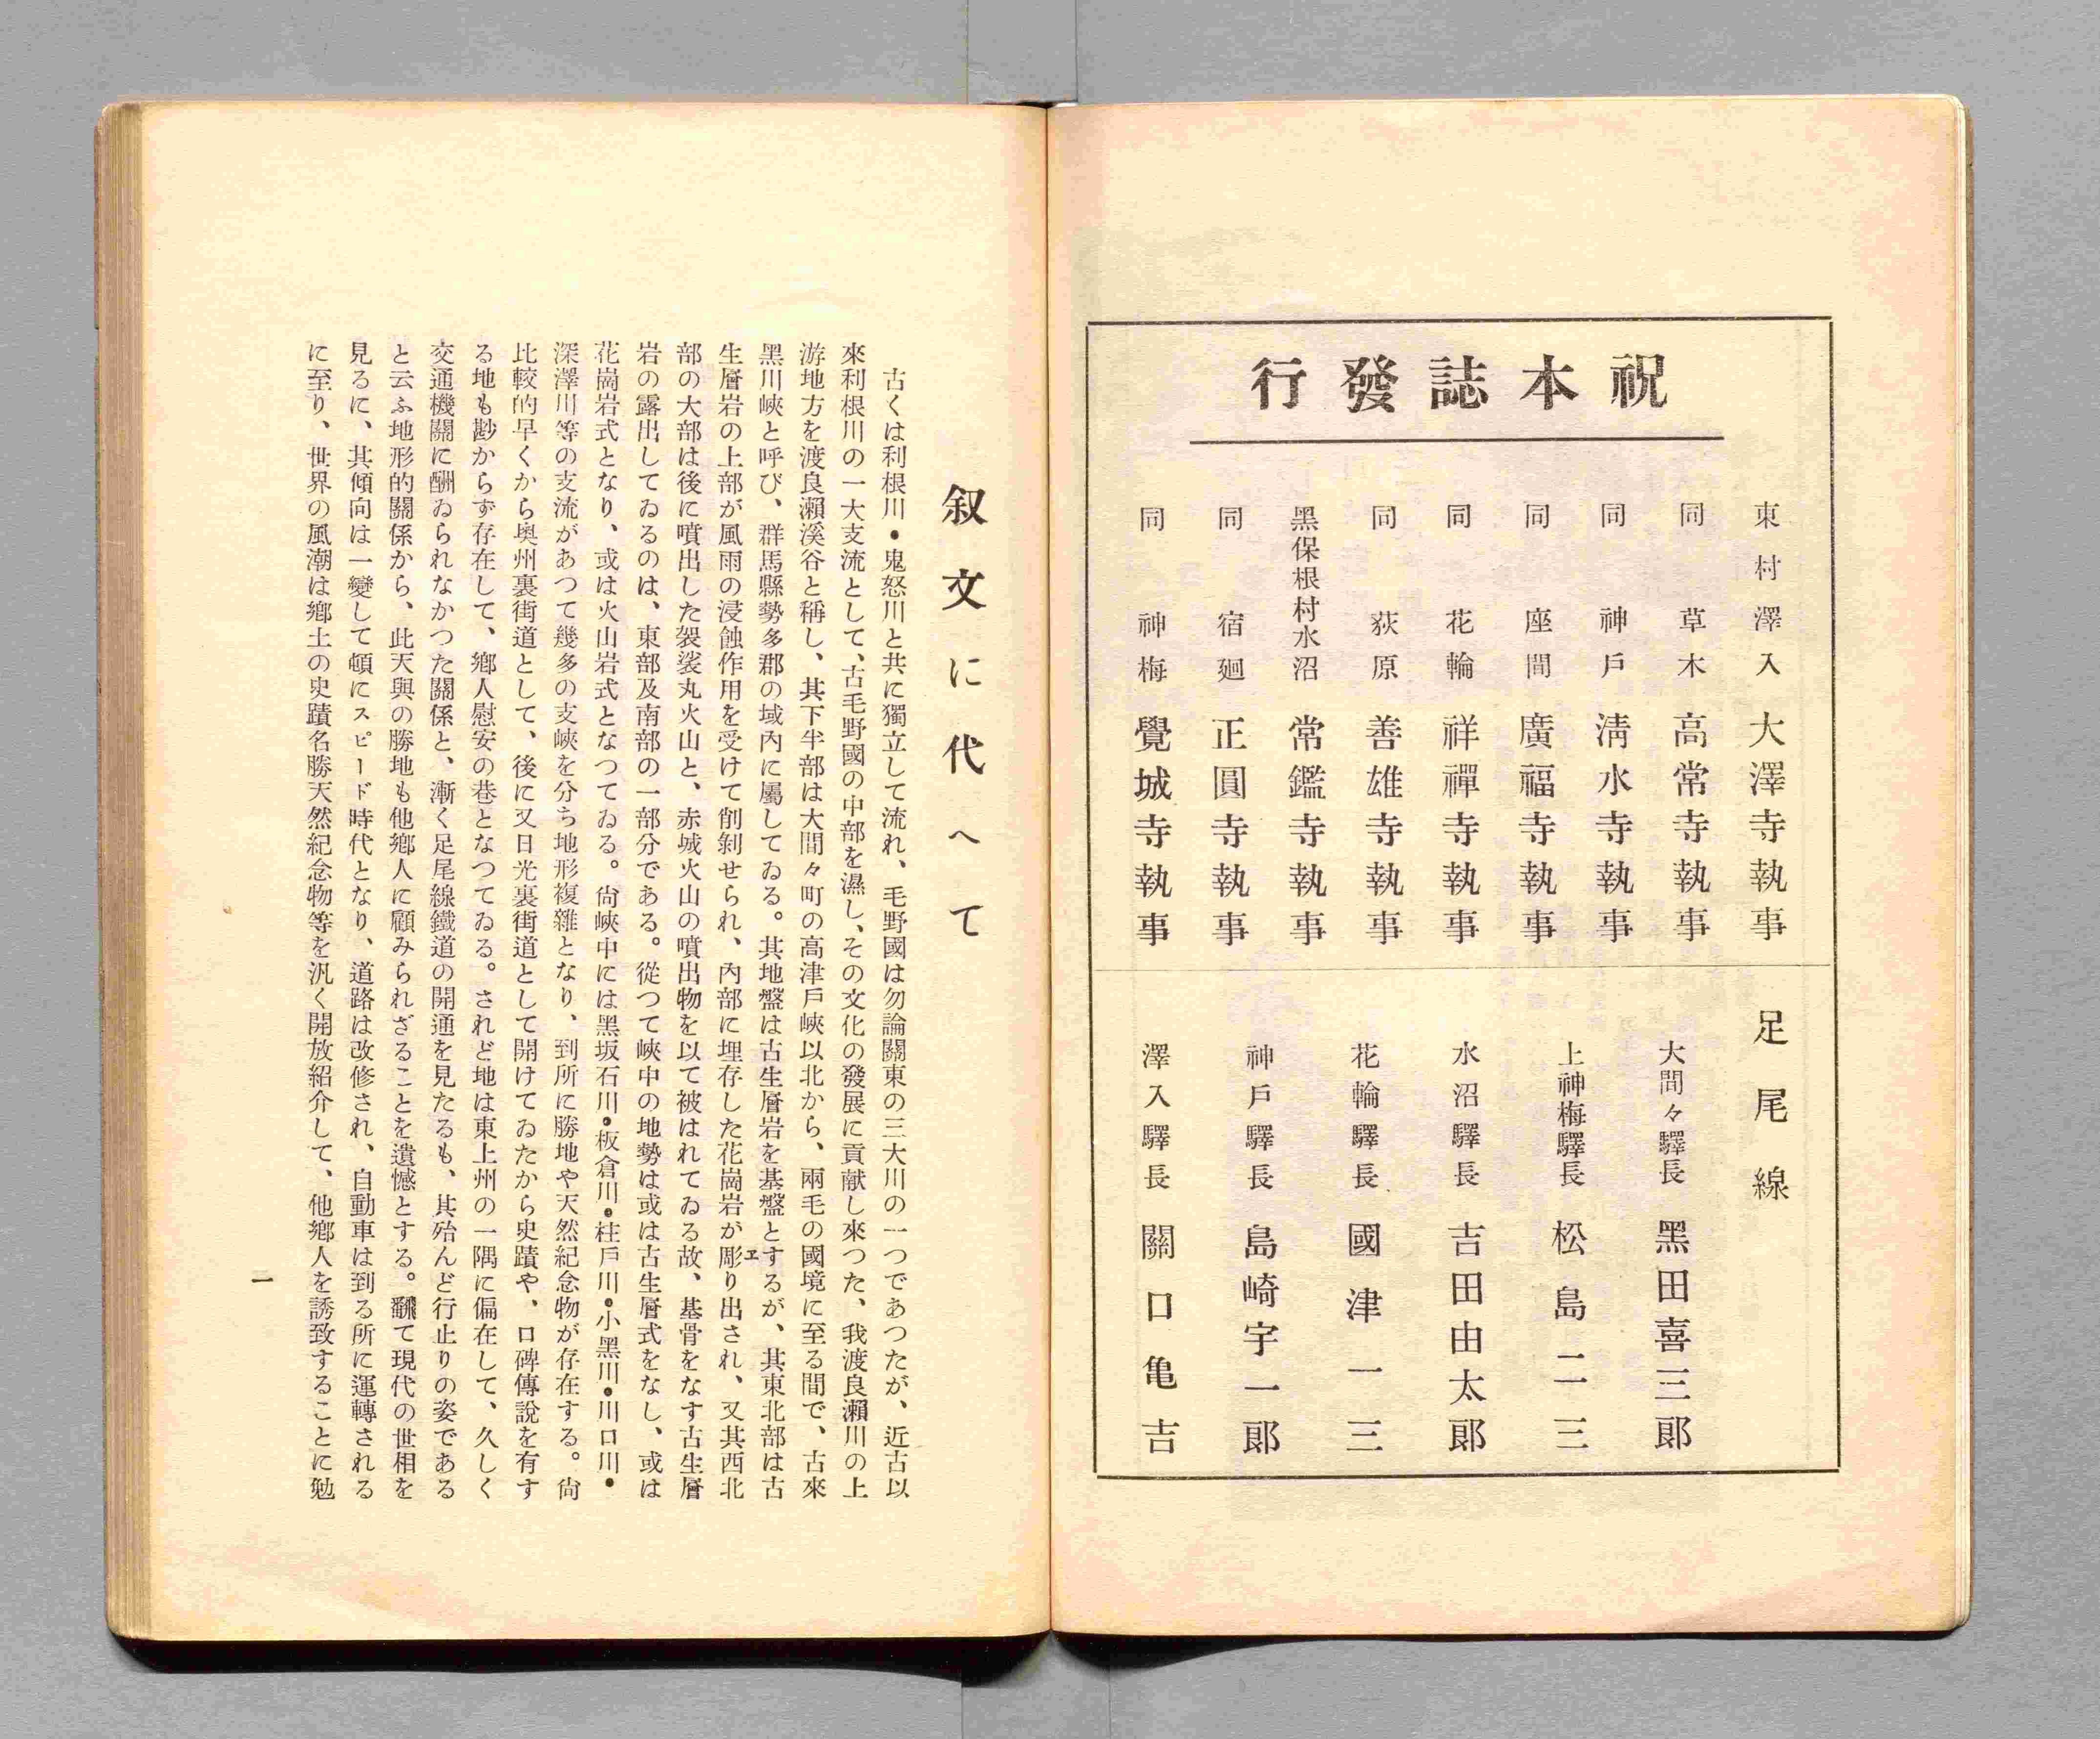 祝本誌發行
東村澤入 大澤寺執事
同 草木 高常寺執事
同 神戶 淸水寺執事
同 座間 廣福寺執事
同 花輪 祥禪寺執事
同 荻原 善雄寺執事
黑保根村水沼 常鑑寺執事
同 宿廻 正圓寺執事
同 神梅 覺城寺執事
足尾線
大間々驛長 黑田喜三郞
上神梅驛長 松島二三
水沼驛長 吉田由太郞
花輪驛長 國津一三
神戶驛長 島崎宇一郞
澤入驛長 關口亀吉
叙文に代へて
古くは利根川・鬼怒川と共に獨立して流れ、毛野國は勿論關東の三大川の一つであつたが、近古以
來利根川の一大支流として、古毛野國の中部を濕し、その文化の發展に貢献し來つた、我渡良瀨川の上
游地方を渡良瀨溪谷と稱し、其下半部は大間々町の高津戶峽以北から、兩毛の國境に至る間で、古來
黑川峽と呼び、群馬縣勢多郡の域內に屬してゐる。其地盤は古生層岩を基盤とするが、其東北部は古
生層岩の上部が風雨の浸蝕作用を受けて削剝せられ、內部に埋存した花崗岩が彫り出され、又其西北
部の大部は後に噴出した袈裟丸火山と、赤城火山の噴出物を以て被はれてゐる故、基骨をなす古生層
岩の露出してゐるのは、東部及南部の一部分である。從つて峽中の地勢は或は古生層式をなし、或は
花崗岩式となり、或は火山岩式となつてゐる。尙峽中には黑坂石川・板倉川・柱戶川・小黑川・川口川・
深澤川等の支流があつて幾多の支峽を分ち地形複雜となり、到所に勝地や天然紀念物が存在する。尙
比較的早くから奥州裏街道として、後に又日光裏街道として開けてゐたから史蹟や、口碑傳說を有す
る地も尠からず存在して、鄕人慰安の巷となつてゐる。されど地は東上州の一隅に偏在して、久しく
交通機關に酬ゐられなかつた關係と、漸く足尾線鐵道の開通を見たるも、其殆んど行止りの姿である
と云ふ地形的關係から、此天與の勝地も他鄕人に顧みられざることを遺憾とする。飜て現代の世相を
見るに、其傾向は一變して頓にスピード時代となり、道路は改修され、自動車は到る所に運轉される
に至り、世界の風潮は鄕土の史蹟名勝天然紀念物等を汎く開放紹介して、他鄕人を誘致することに勉
一